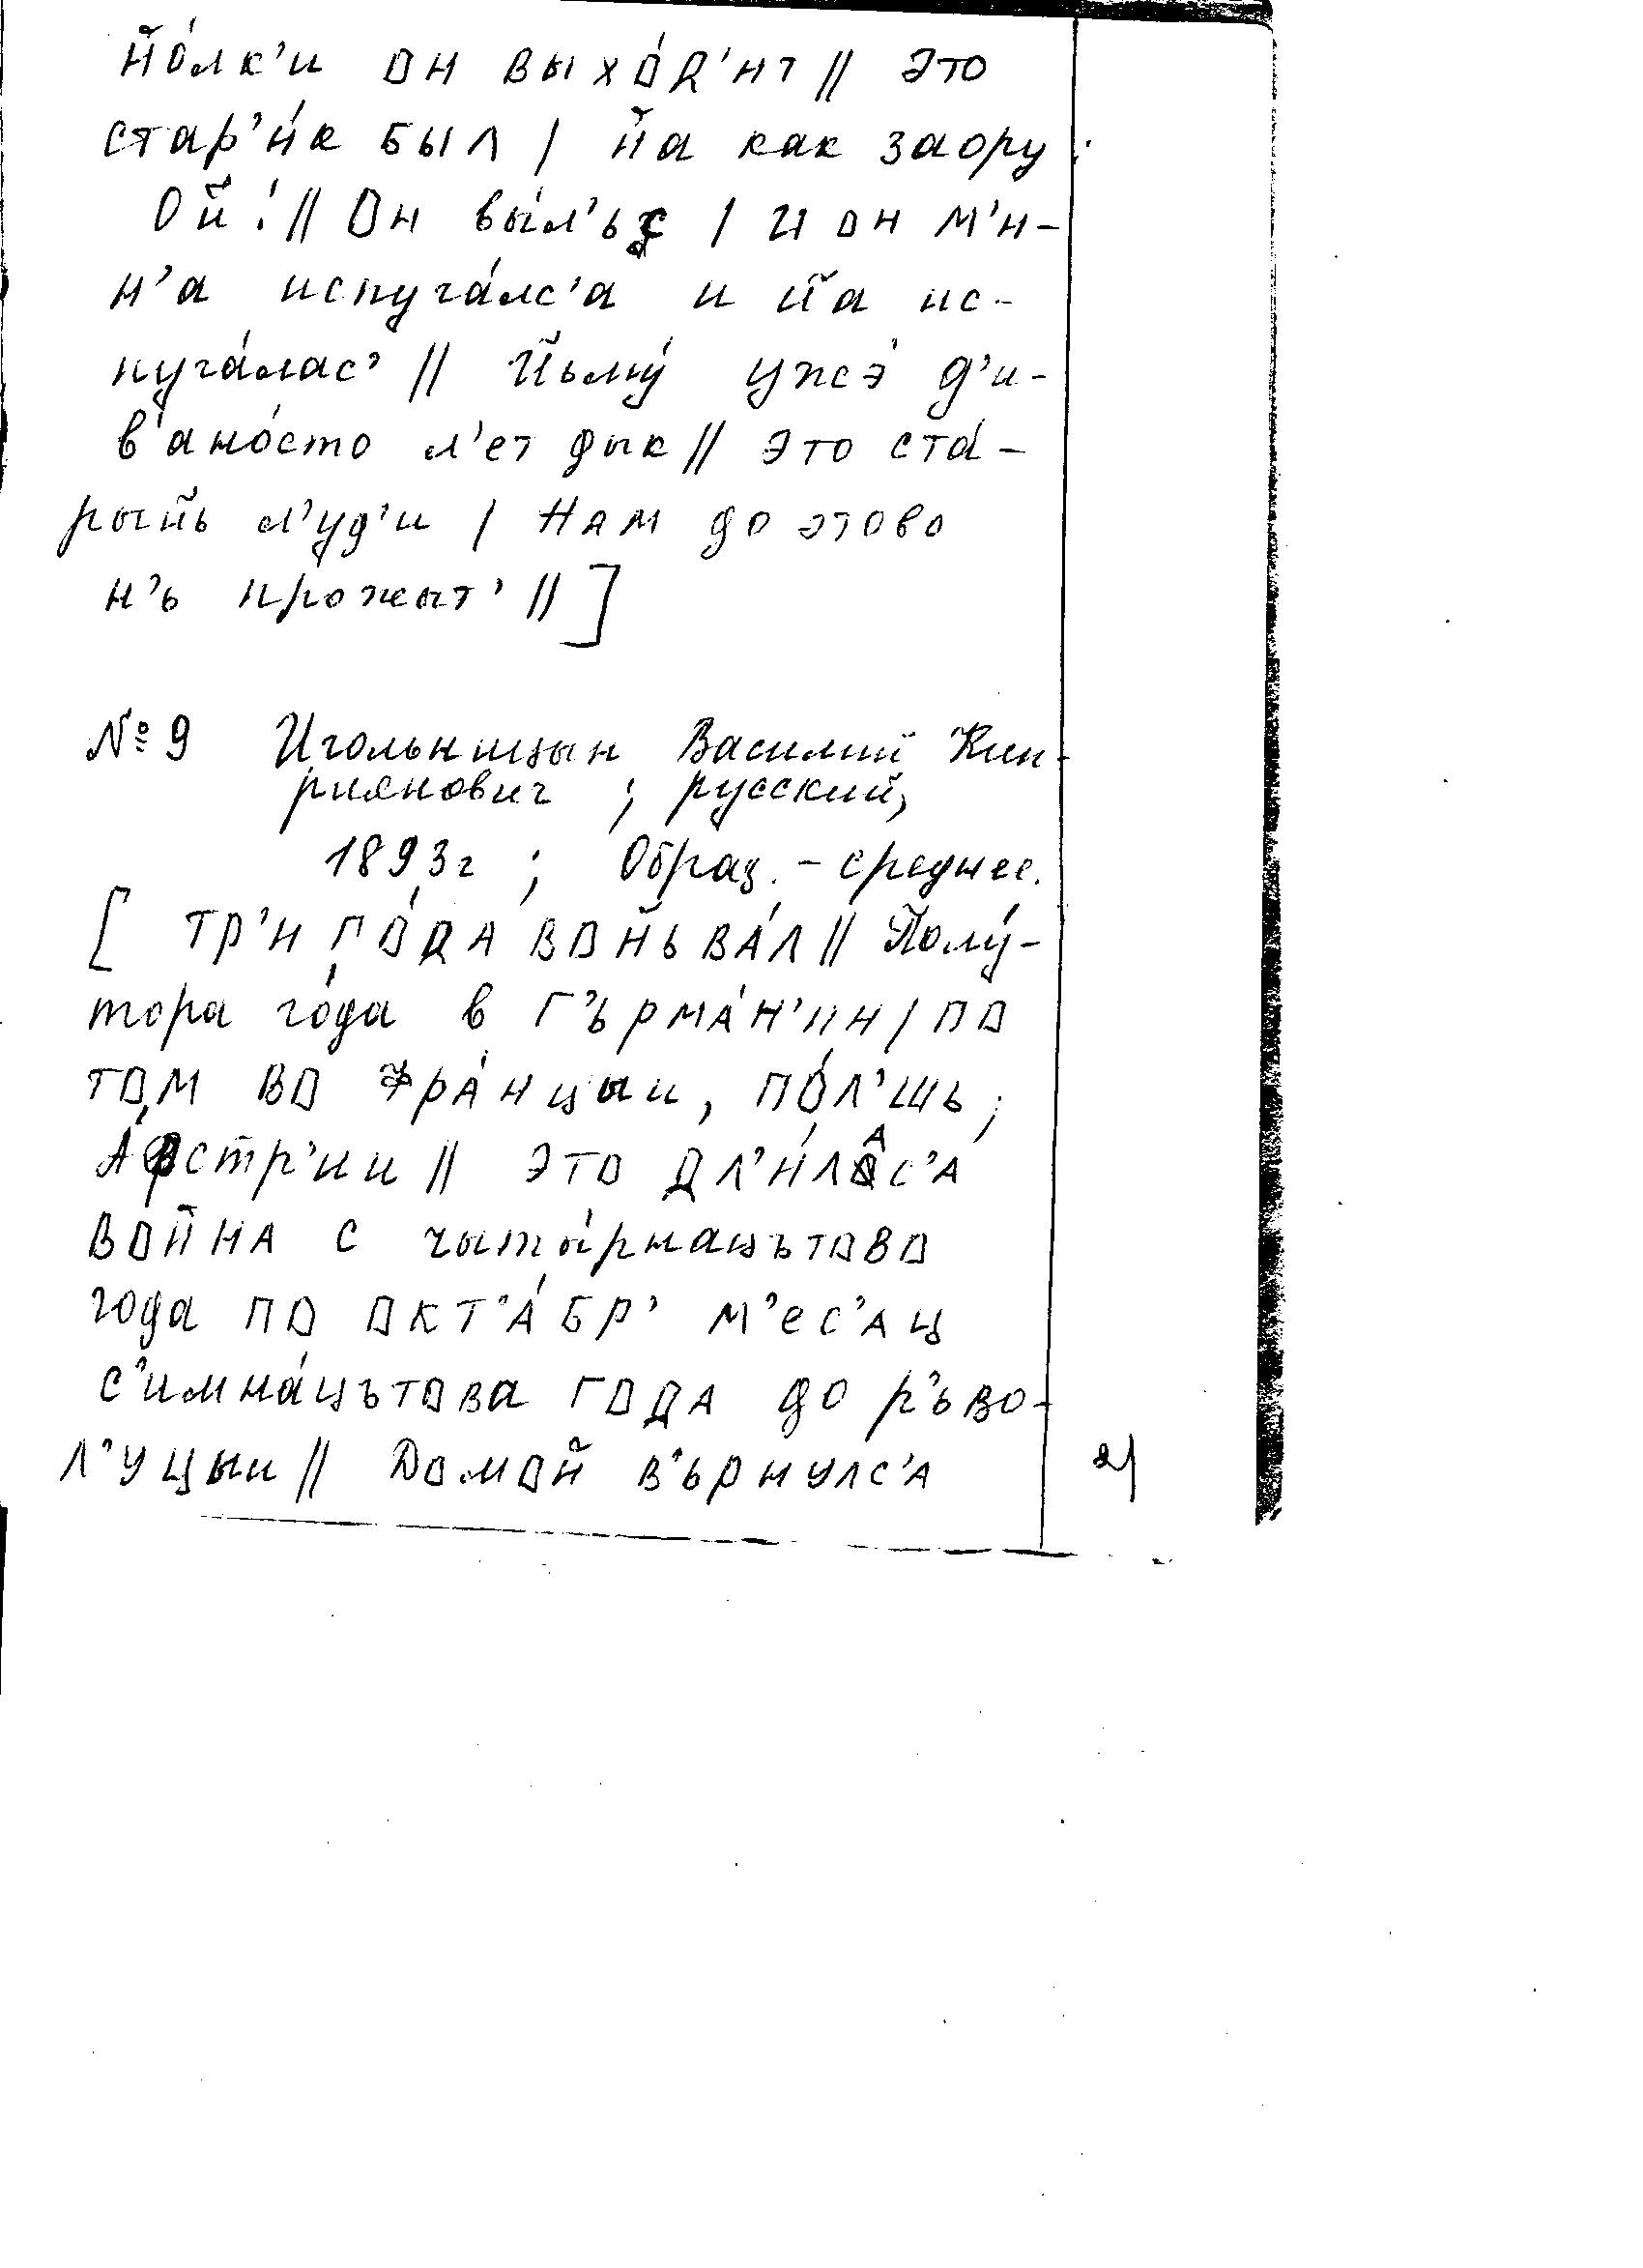 йо́лк'и он выхо́д'ит // это
стар'и́к был / йа как заору :
Ой! // Он вы́л'ьс / и он м'и-
н'а испуга́лс'а и йа ис-
пуга́лас' // Йьму́ ужэ́ д'и-
в'ано́сто л'ет дык // это ста́-
рыйь л'уд'и / нам до этово
н'ь прожыт' // ]
№ 9 Игольницын Василий Кип-
риянович ; русский,
1893 г ; Образ. - среднее.
[ тр'и го́да войьва́л // Полу́-
тора го́да в г'ърма́н'ии / по
том во фра́нцыи, по́л'шь ;
А́встр'ии // это дл'и́лас'а
война с чыты́рнацътово
года по окт'а́бр' м'ес'ац
с'имна́цътова года до р'ъво-
л'уцыи // Домой в'ьрнулс'а
21